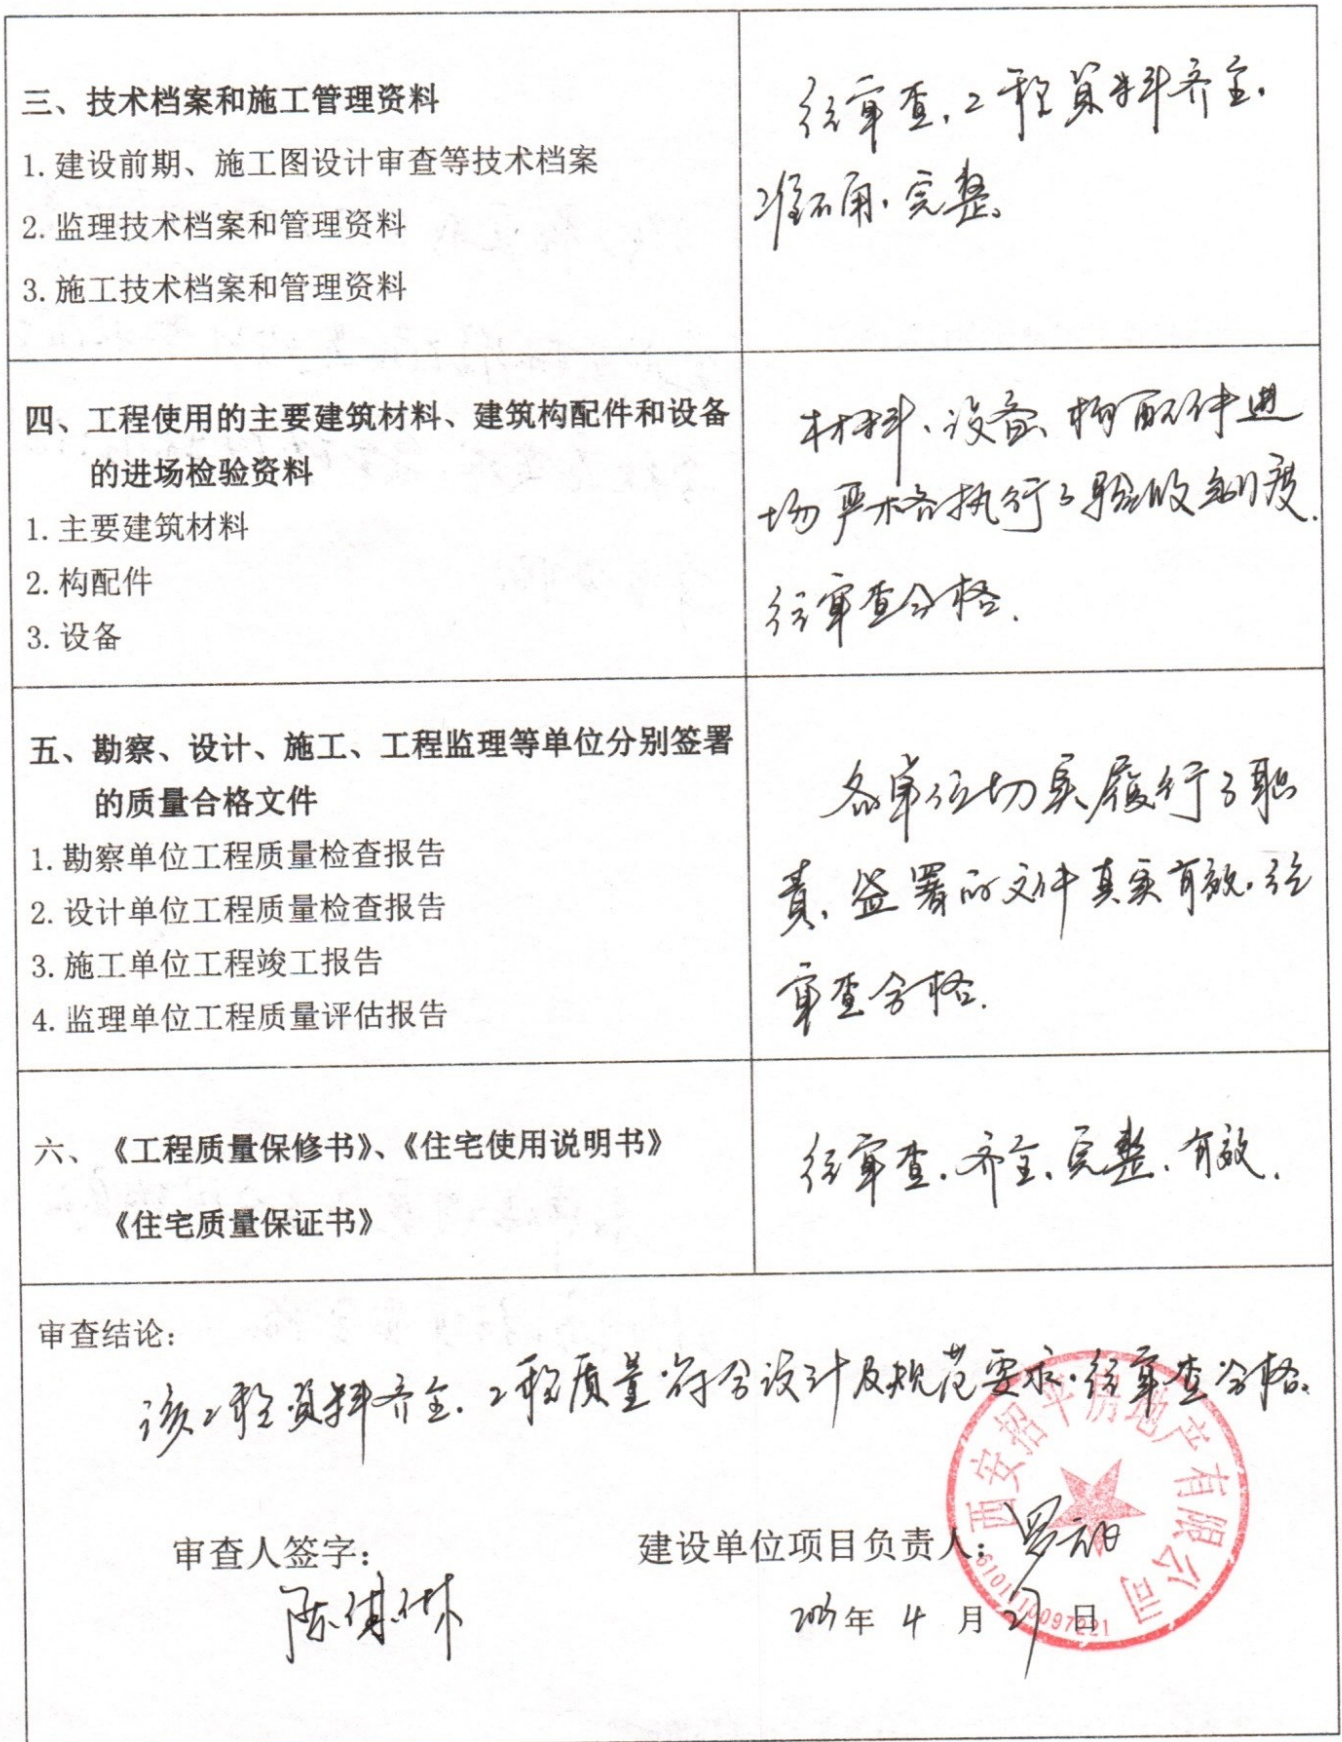 三、技术档案和施工管理资料
1.建设前期、施工图设计审查等技术档案
2.监理技术档案和管理资料
3.施工技术档案和管理资料
经审查,工程资料齐全.
准确.完整。
四、工程使用的主要建筑材料、建筑构配件和设备
的进场检验资料
1.主要建筑材料
2.构配件
3.设备
材料、设备、构配件进
场严格执行了验收制度.
经审查合格.
五、勘察、设计、施工、工程监理等单位分别签署
的质量合格文件
1.勘察单位工程质量检查报告
2.设计单位工程质量检查报告
3.施工单位工程竣工报告
4.监理单位工程质量评估报告
各单位切实履行了职
责,签署的文件真实有效.经
审查合格.
六、《工程质量保修书》、《住宅使用说明书》
《住宅质量保证书》
经审查.齐全、完整、有效.
审查结论:
该工程资料齐全.工程质量符合设计及规范要求.经审查合格.
西安招平房地产有限公司
审查人签字:
建设单位项目负责人:
年 4 月 27 日
6101110097221